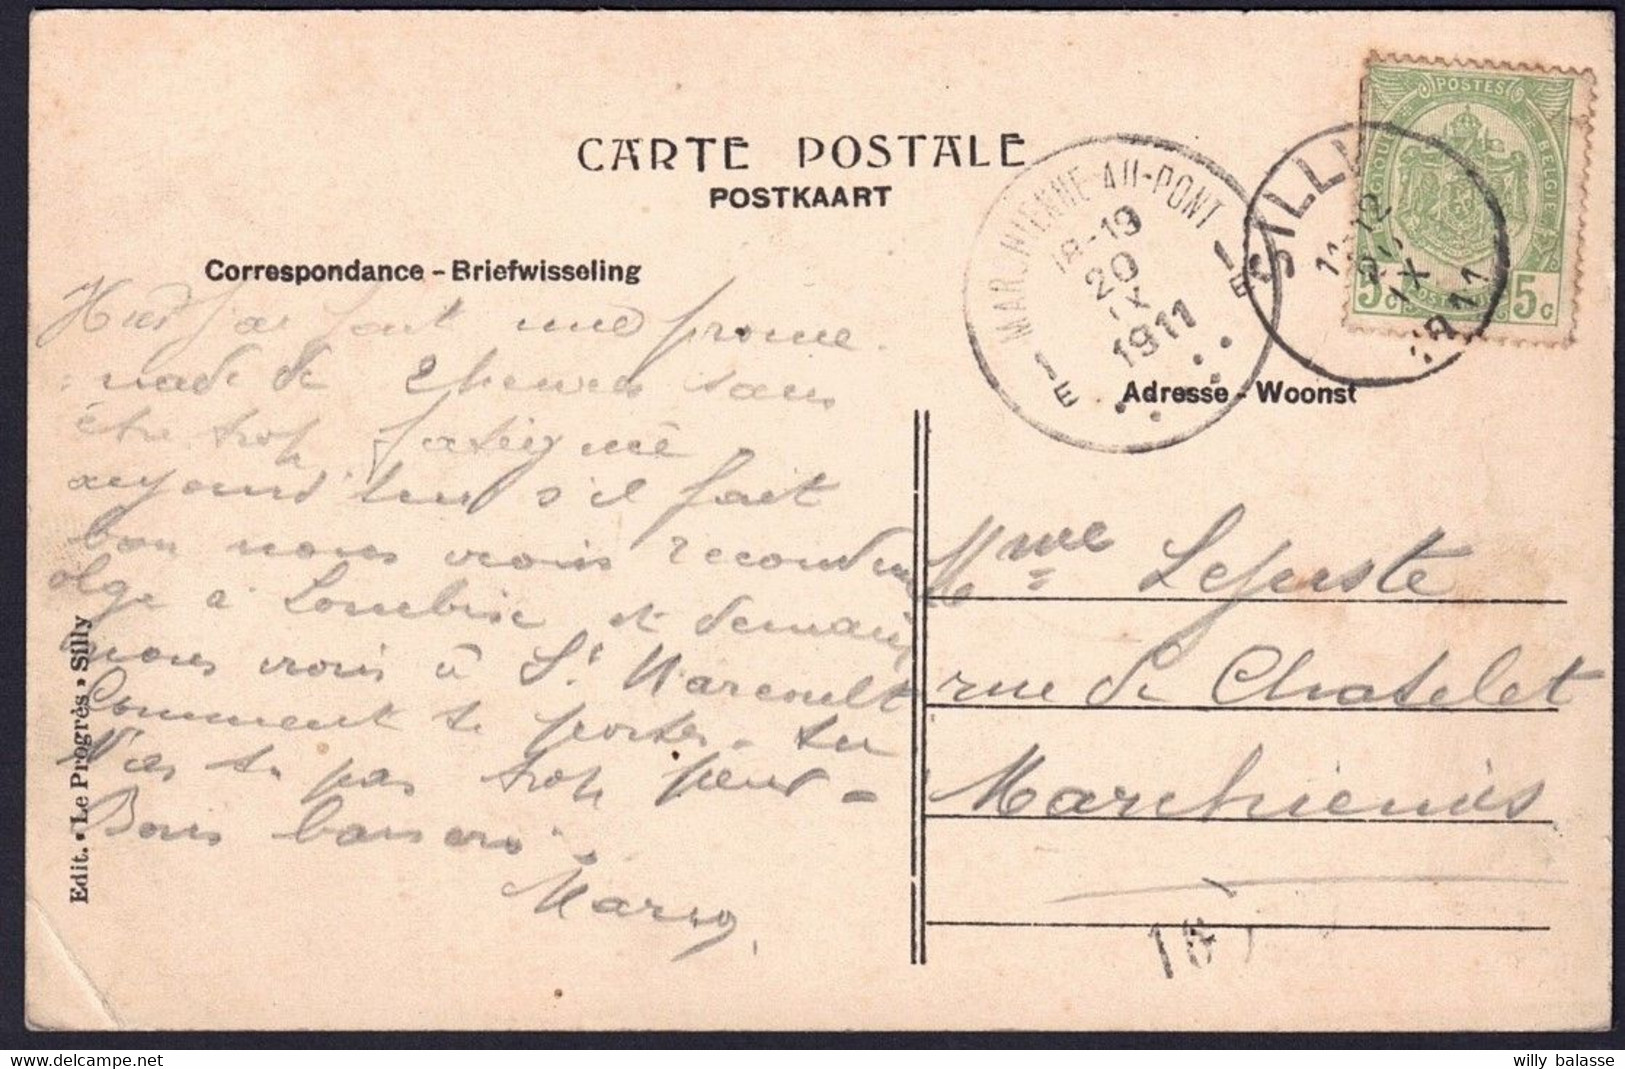 CARTE POSTALE
POSTKAART
Correspondance - Briefwisseling
Hier j'ai fait une prome-
nade de 2 heures sans
être trop fatigué
aujourd'hui s'il fait
bon nous irons
à Lombise et demain
nous irons à St Marcoult
Comment te portes-tu
N'as tu pas trop peur -
Bons baisers
Edit. • Le Progrès • Silly
MARCHIENNE-AU-PONT
18-19
20
IX
1911
1 E
1 E
SILLY
11-12
20
IX
1911
POSTES
BELGIQUE
BELGIE
5c
5c
Adresse - Woonst
Mme
rue de Chatelet
Marchiennes
16
willy balasse